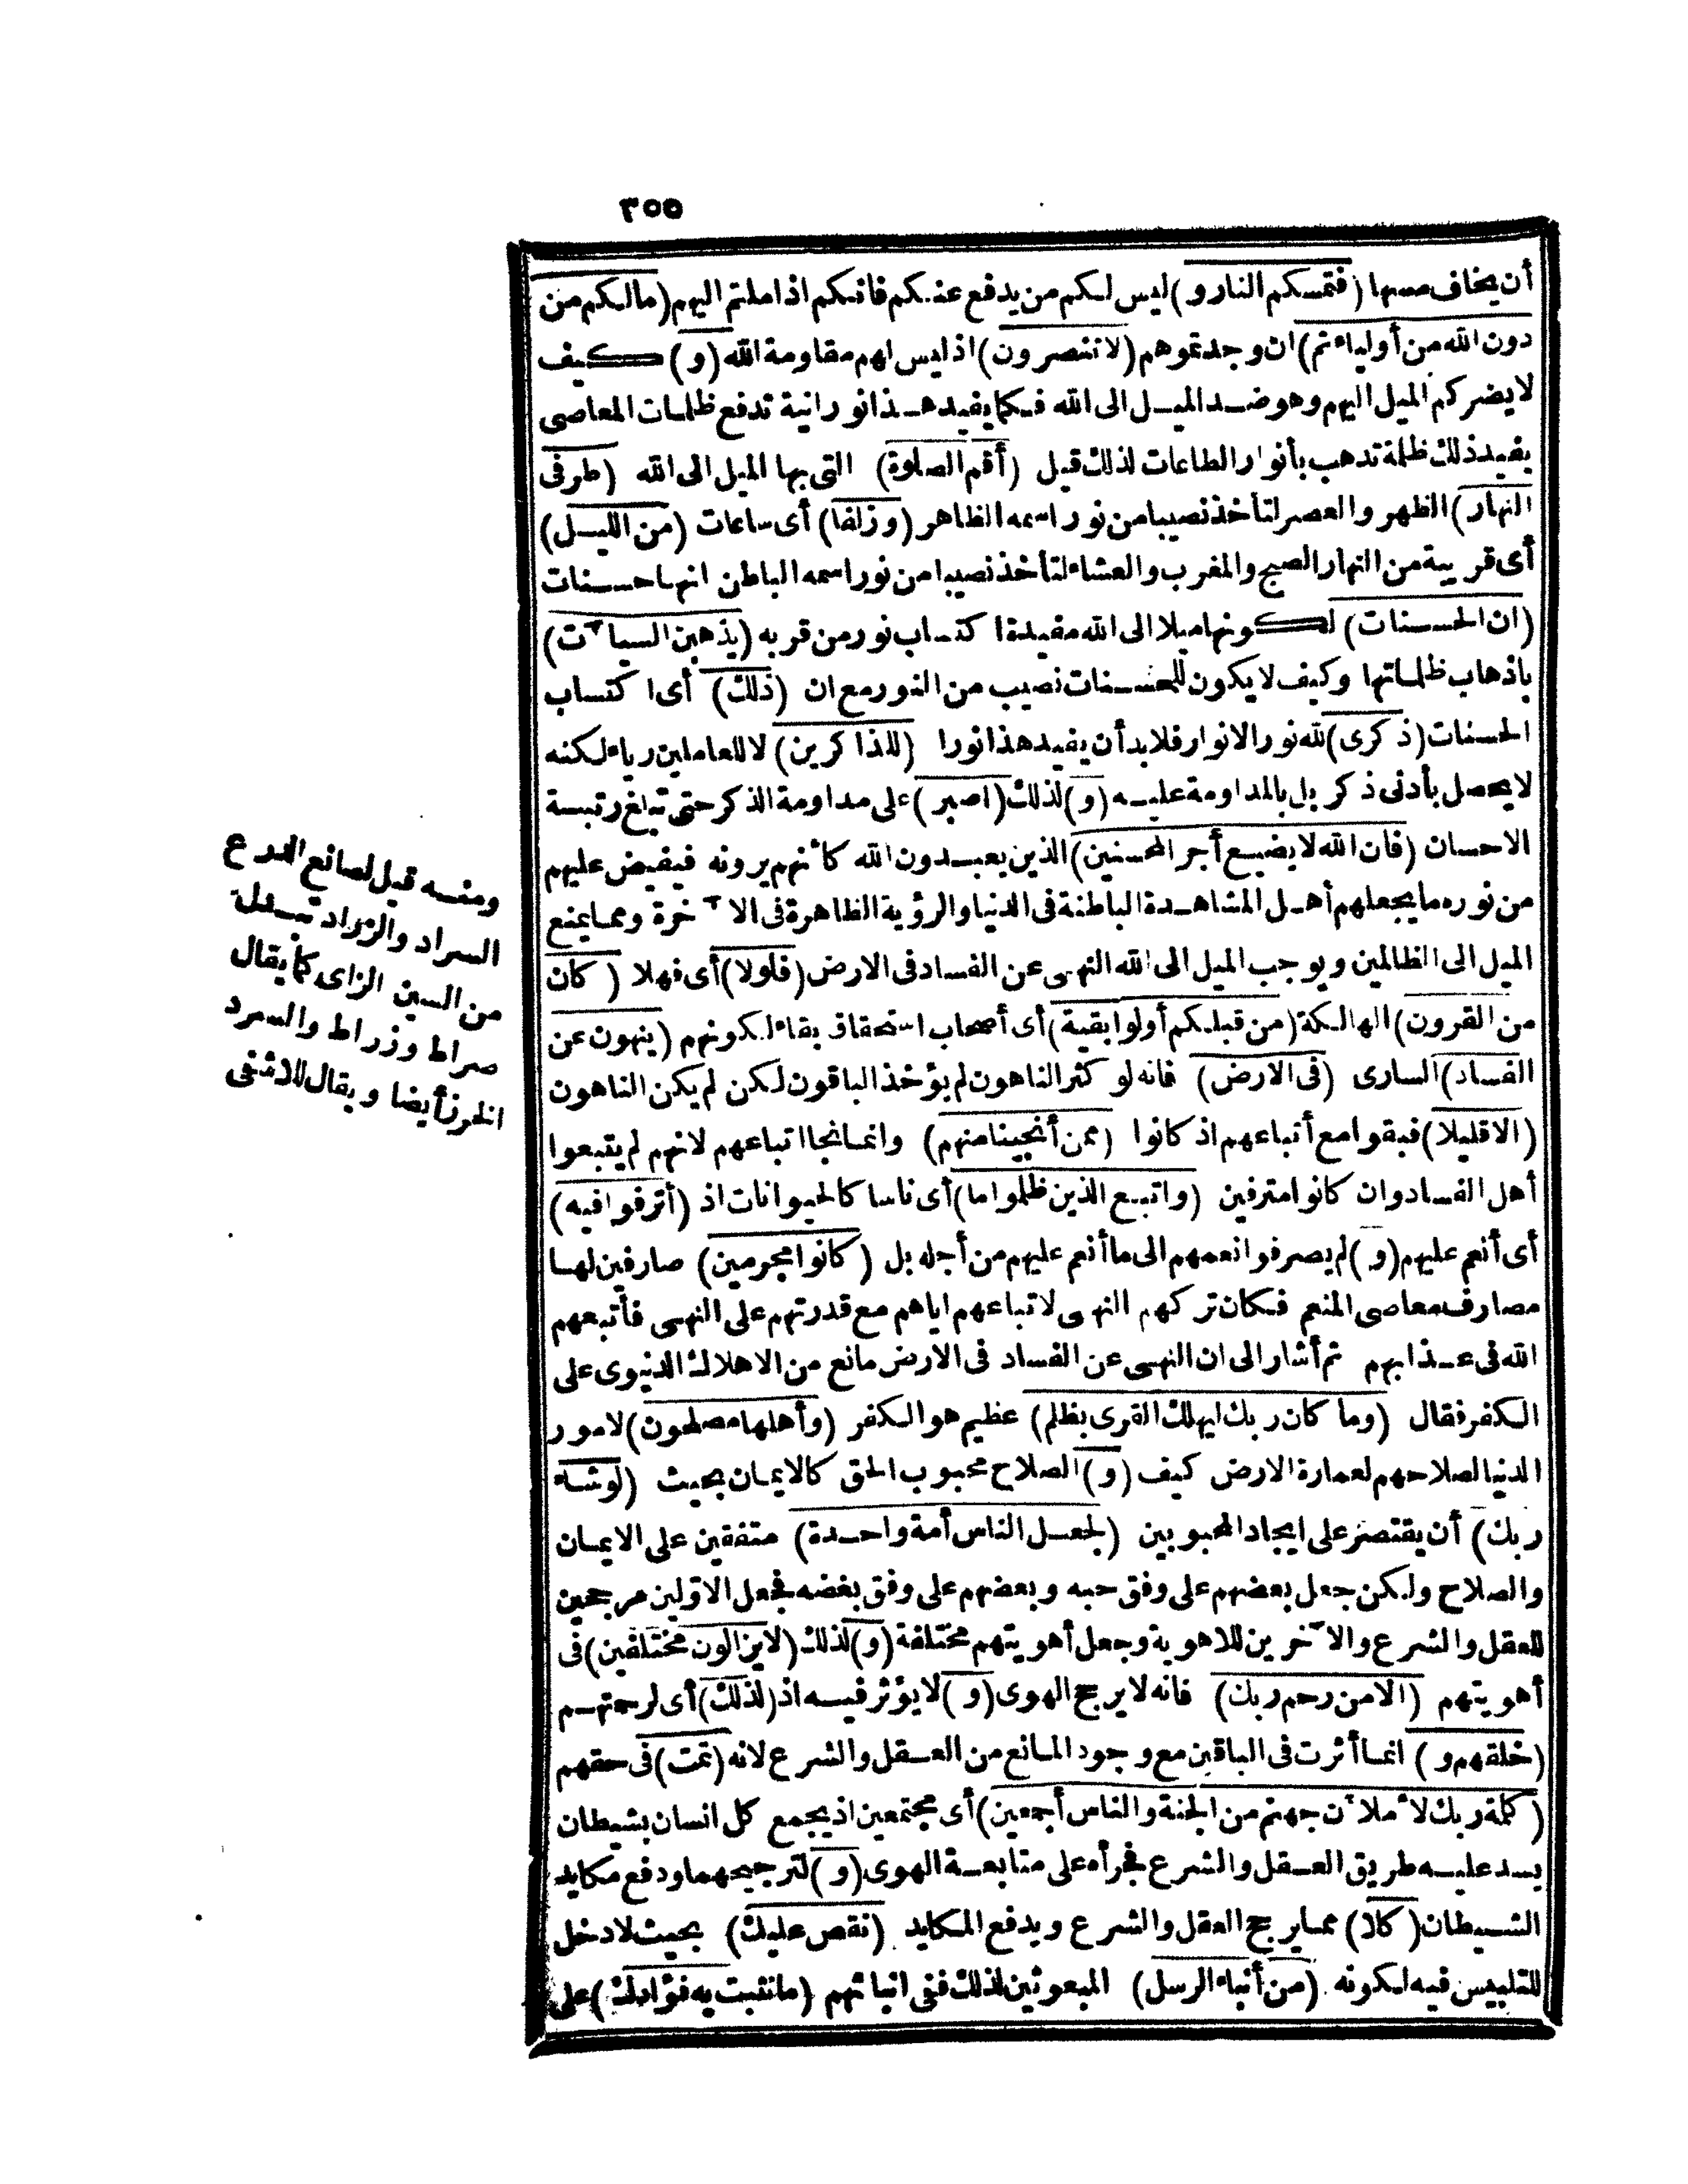 ٣٥٥
أن يخاف مسها (فتمسكم النار و) ليس لكم من يدفع عنكم فانكم اذا ملتم اليهم (مالكم من
دون الله من أولياء ثم) ان وجدتموهم (لاتنصرون) اذ ليس لهم مقاومة الله (و) كيف
لايضركم الميل اليهم وهو ضد الميل الى الله فكما يفيد هذا نورانية تدفع ظلمات المعاصى
يفيد ذلك ظلمة تذهب بأنوار الطاعات لذلك قيل (أقم الصلوة) التى بها الميل الى الله (طرفى
النهار) الظهر والعصر لتأخذ نصيبا من نور اسمه الظاهر (وزلفا) أى ساعات (من الليل)
أى قريبة من النهار الصبح والمغرب والعشاء لتأخذ نصيبا من نور اسمه الباطن انها حسنات
(ان الحسنات) لكونها ميلا الى الله مفيدة اكتساب نور من قربه (يذهبن السيآت)
باذهاب ظلماتها وكيف لايكون للمحسنات نصيب من النور مع ان (ذلك) أى اكتساب
الحسنات (ذكرى) لله نور الانوار فلابد أن يفيد هذا نورا (للذاكرين) لا للعاملين رياء لكنه
لايحصل بأدنى ذكر بل بالمداومة عليه (و) لذلك (اصبر) على مداومة الذكر حتى تبلغ رتبة
الاحسان (فان الله لايضيع أجر المحسنين) الذين يعبدون الله كأنهم يرونه فيفيض عليهم
من نوره ما يجعلهم أهل المشاهدة الباطنة فى الدنيا والرؤية الظاهرة فى الآخرة ومما يمنع
الميل الى الظالمين ويوجب الميل الى الله النهى عن الفساد فى الارض (فلولا) أى فهلا (كان
من القرون) الهالكة (من قبلكم أولوا بقية) أى أصحاب استحقاق بقاء لكونهم (ينهون عن
الفساد) السارى (فى الارض) فانه لو كثر الناهون لم يؤخذ الباقون لكن لم يكن الناهون
(الاقليلا) فبقوا مع أتباعهم اذ كانوا (ممن أنجينا منهم) وانما نجا اتباعهم لانهم لم يتبعوا
أهل الفساد وان كانوا مترفين (واتبع الذين ظلموا ما) أى ناسا كالحيوانات اذ (أترفوا فيه)
أى أنعم عليهم (و) لم يصرفوا نعمهم الى ما أنعم عليهم من أجله بل (كانوا مجرمين) صارفين لها
مصارف معاصى المنعم فكان تركهم النهى لاتباعهم اياهم مع قدرتهم على النهى فأتبعهم
الله فى عذابهم ثم أشار الى ان النهى عن الفساد فى الارض مانع من الاهلاك الدنيوى على
الكفر فقال (وما كان ربك ليهلك القرى بظلم) عظيم هو الكفر (وأهلها مصلحون) لامور
الدنيا لصلاحهم لعمارة الارض كيف (و) الصلاح محبوب الحق كالايمان بحيث (لوشاء
ربك) أن يقتصر على ايجاد المحبوبين (لجعل الناس أمة واحدة) متفقين على الايمان
والصلاح ولكن جعل بعضهم على وفق حبه وبعضهم على وفق بغضه فجعل الاولين مرجحين
للعقل والشرع والآخرين للاهوية وجعل أهويتهم مختلفة (و) لذلك (لايزالون مختلفين) فى
أهويتهم (الامن رحم ربك) فانه لايرجح الهوى (و) لايؤثر فيه اذ (لذلك) أى لرحمتهم
(خلقهم و) انما أثرت فى الباقين مع وجود المانع من العقل والشرع لانه (تمت) فى حقهم
(كلمة ربك لأملأن جهنم من الجنة والناس أجمعين) أى مجتمعين اذ يجمع كل انسان بشيطان
يسد عليه طريق العقل والشرع فجرأه على متابعة الهوى (و) لترجيحهما ودفع مكايد
الشيطان (كلا) مما يرجح العقل والشرع ويدفع المكايد (نقص عليك) بحيث لادخل
للتلبيس فيه لكونه (من أنباء الرسل) المبعوثين لذلك ففى انبائهم (مانثبت به فؤادك) على
ومنه قيل لصانع الدرع
السراد والزراد تبدل
من السين الزاى كما يقال
صراط وزراط والسرد
الخرز أيضا ويقال للاشفى